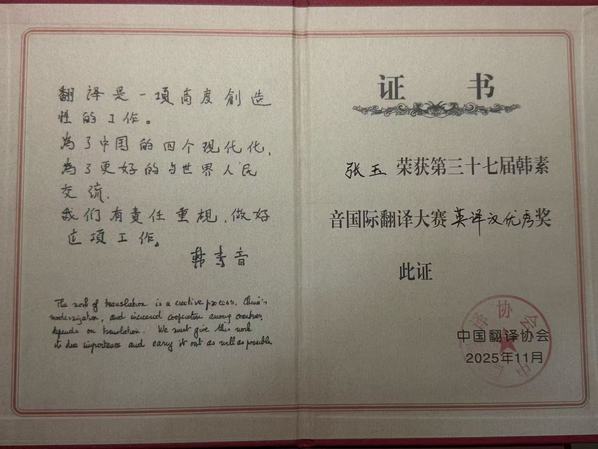 翻译是一項高度創造
性的工作。
為了中国的四个现代化,
為了更好的与世界人民
交流.
我们有责任重視,做好
这項工作。
韩素音
The work of translation is a creative process. China's
modernization, and increased cooperation among countries,
depends on translation. We must give this work
its due importance and carry it out as well as possible.
证书
张五 荣获第三十七届韩素
音国际翻译大赛英译汉优秀奖
此证
中国翻译协会
2025年11月
译协会